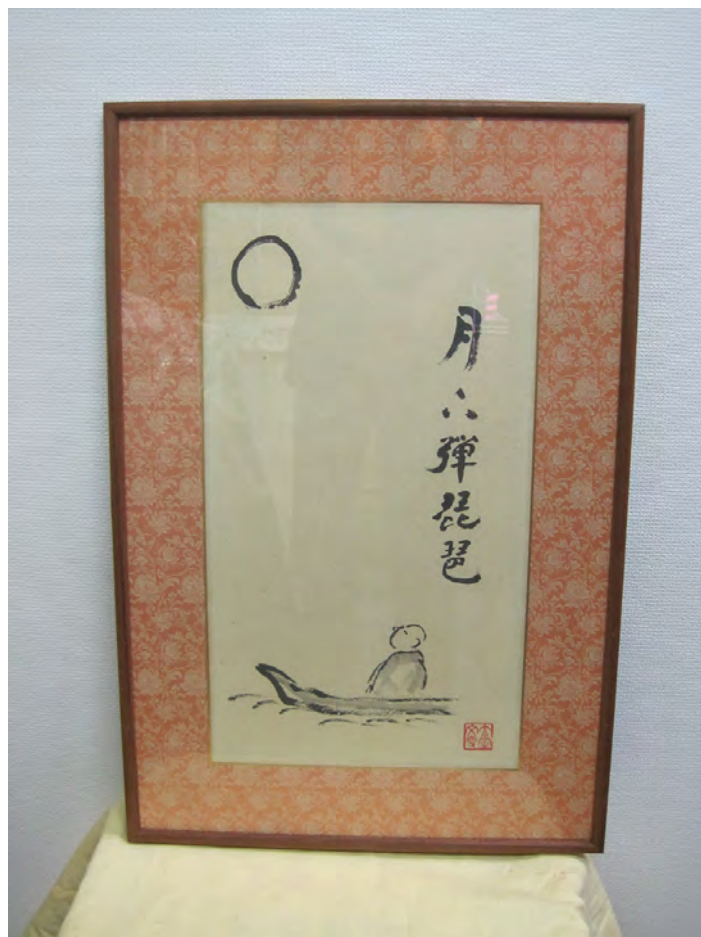 月下彈琵琶